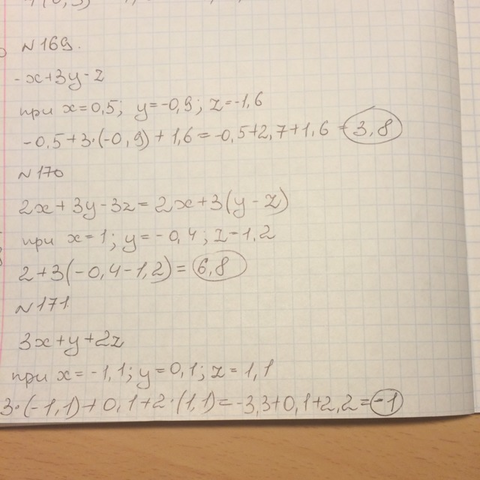 №169.
-x+3y-z
при x=0,5; y=-0,9; z=-1,6
-0,5+3·(-0,9)+1,6=-0,5+2,7+1,6=3,8
№170
2x+3y-3z=2x+3(y-z)
при x=1; y=-0,4; z=1,2
2+3(-0,4-1,2)=6,8
№171
3x+y+2z
при x=-1,1; y=0,1; z=1,1
3·(-1,1)+0,1+2·(1,1)=-3,3+0,1+2,2=-1